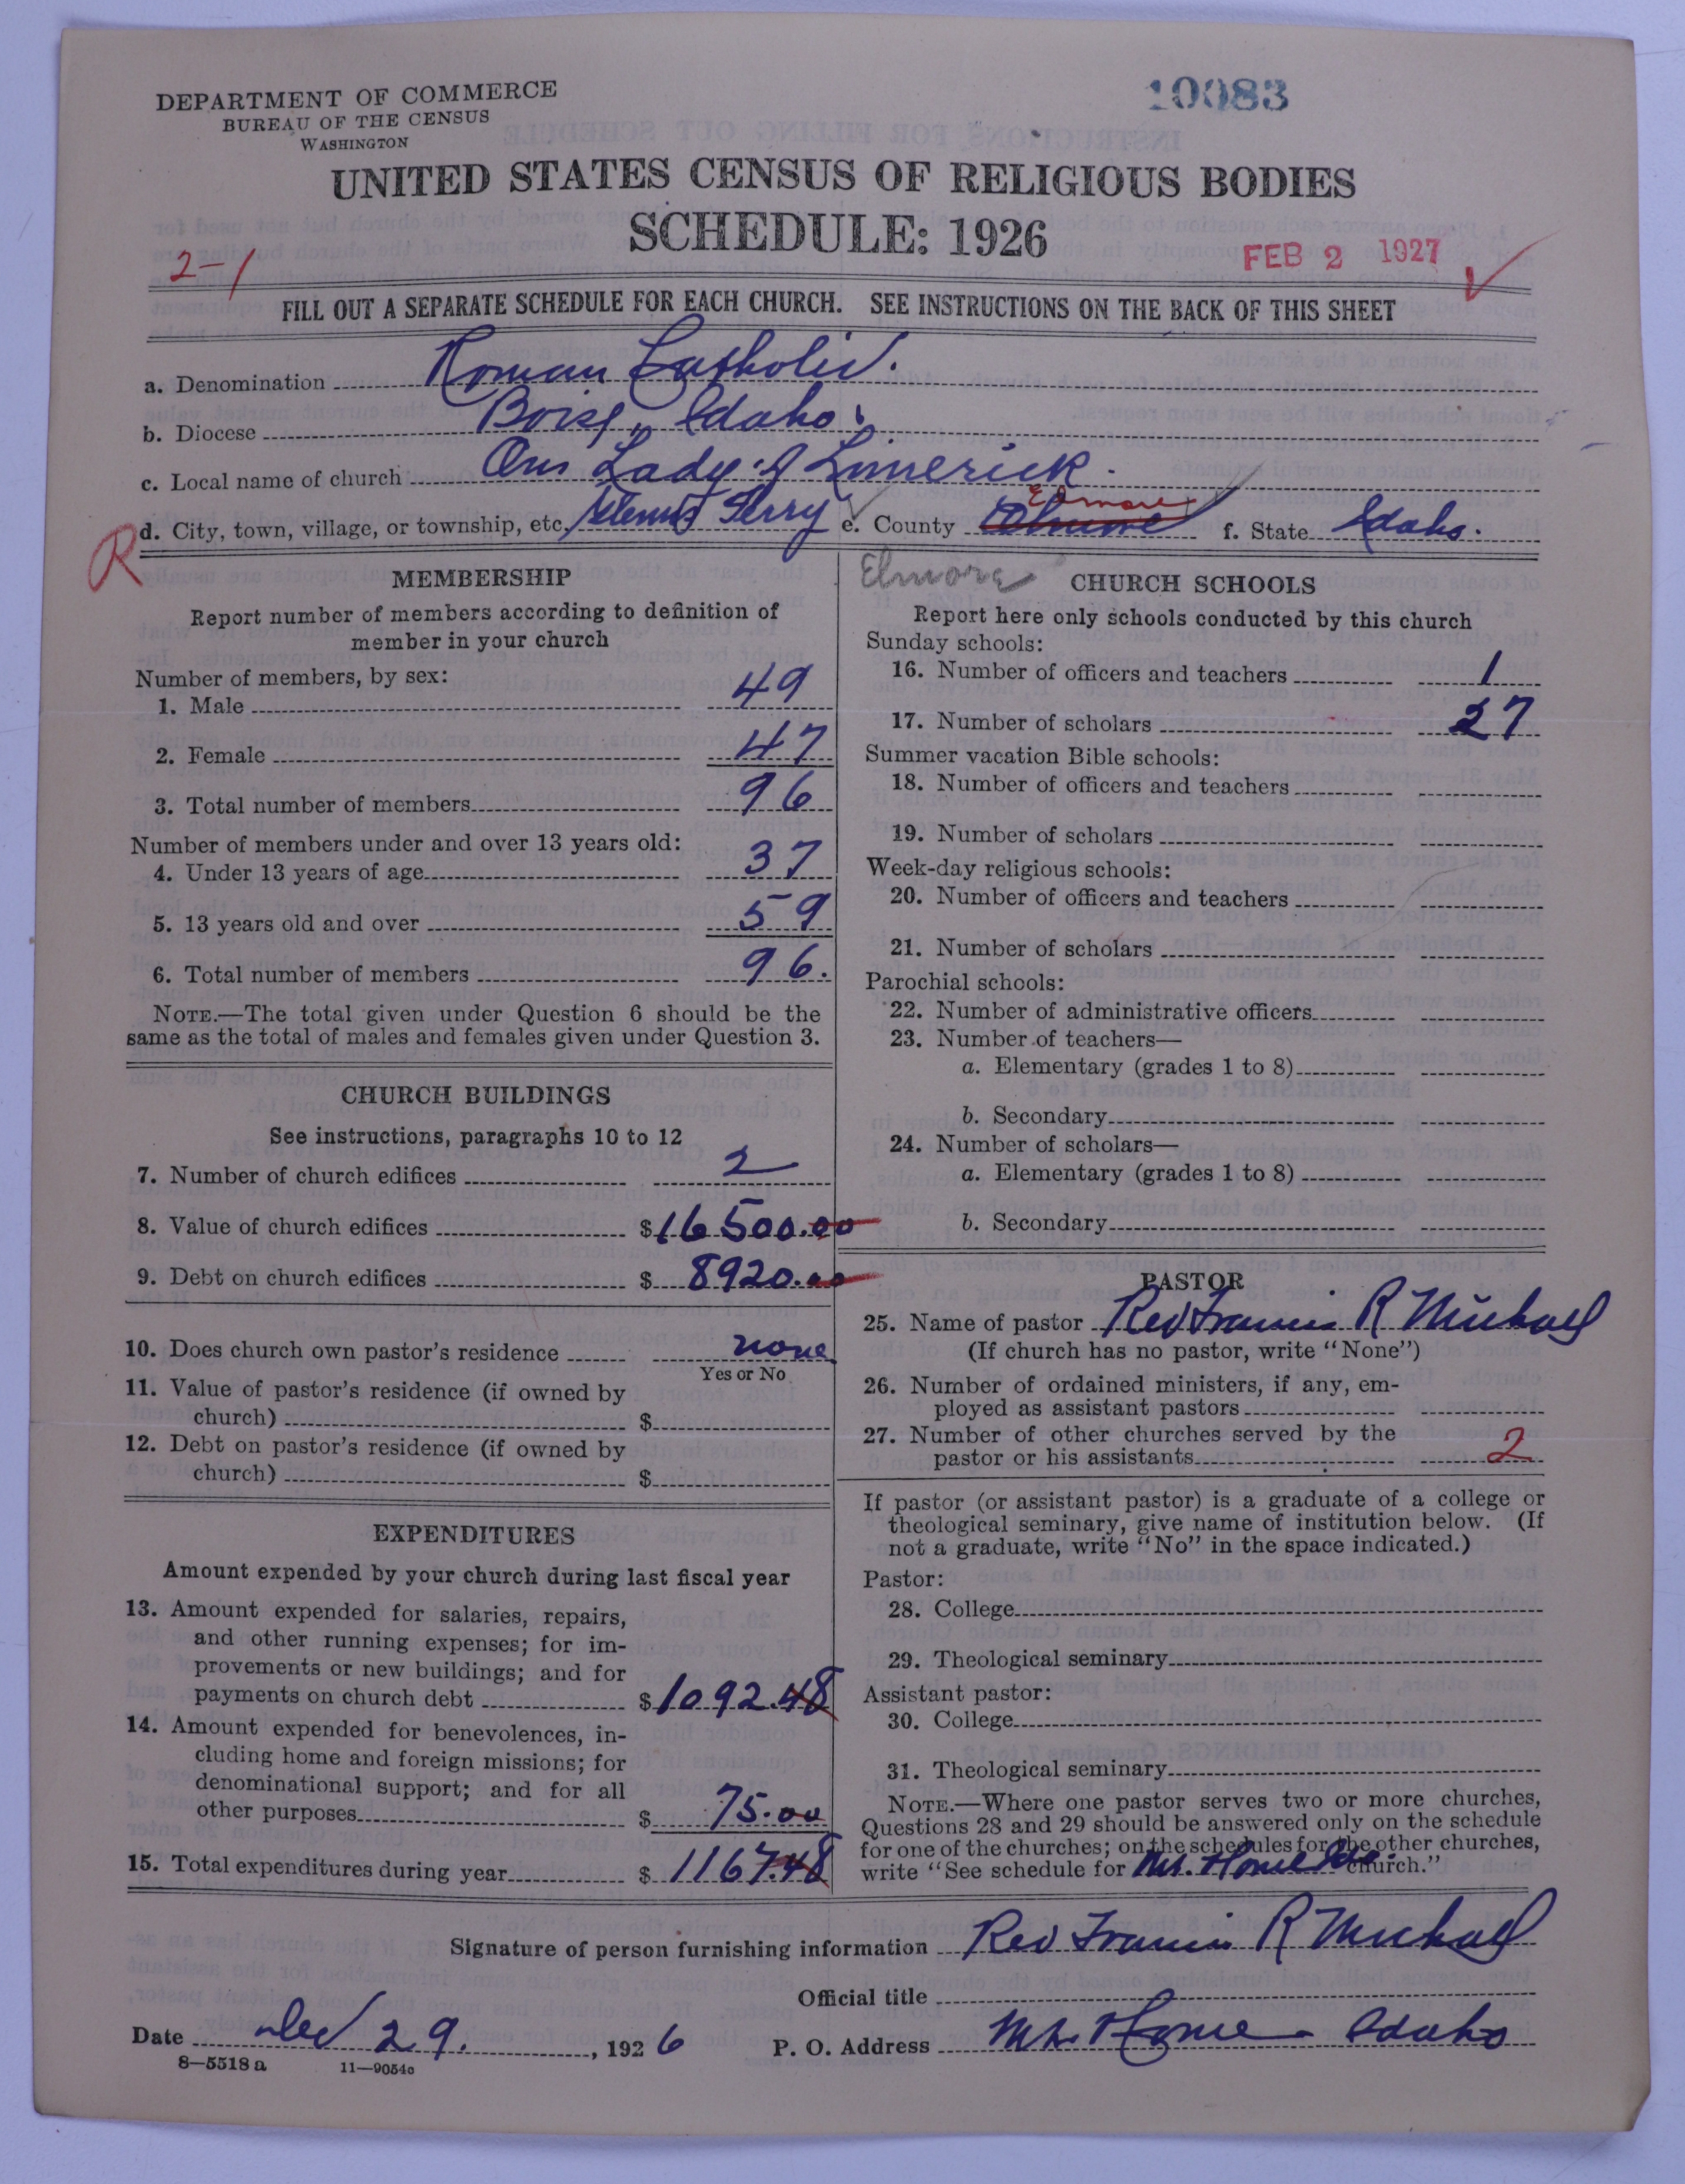 DEPARTMENT OF COMMERCE
BUREAU OF THE CENSUS
WASHINGTON
10083
UNITED STATES CENSUS OF RELIGIOUS BODIES
SCHEDULE: 1926
2-1
FEB 2 1927
FILL OUT A SEPARATE SCHEDULE FOR EACH CHURCH. SEE INSTRUCTIONS ON THE BACK OF THIS SHEET
a. Denomination Roman Catholic.
b. Diocese Boise, Idaho.
c. Local name of church Our Lady of Limerick.
Elmore
d. City, town, village, or township, etc. Glenns Ferry e. County f. State Idaho.
R
Elmore
MEMBERSHIP
Report number of members according to definition of
member in your church
Number of members, by sex:
1. Male 49
2. Female 47
3. Total number of members 96
Number of members under and over 13 years old:
4. Under 13 years of age 37
5. 13 years old and over 59
6. Total number of members 96.
NOTE.—The total given under Question 6 should be the
same as the total of males and females given under Question 3.
CHURCH BUILDINGS
See instructions, paragraphs 10 to 12
7. Number of church edifices 2
8. Value of church edifices $16500.00
9. Debt on church edifices $ 8920.00
10. Does church own pastor's residence none
Yes or No
11. Value of pastor's residence (if owned by
church) $
12. Debt on pastor's residence (if owned by
church) $
EXPENDITURES
Amount expended by your church during last fiscal year
13. Amount expended for salaries, repairs,
and other running expenses; for im-
provements or new buildings; and for
payments on church debt $1092.48
14. Amount expended for benevolences, in-
cluding home and foreign missions; for
denominational support; and for all
other purposes $ 75.00
15. Total expenditures during year $ 1167.48
CHURCH SCHOOLS
Report here only schools conducted by this church
Sunday schools:
16. Number of officers and teachers 1
17. Number of scholars 27
Summer vacation Bible schools:
18. Number of officers and teachers
19. Number of scholars
Week-day religious schools:
20. Number of officers and teachers
21. Number of scholars
Parochial schools:
22. Number of administrative officers
23. Number of teachers—
a. Elementary (grades 1 to 8)
b. Secondary
24. Number of scholars—
a. Elementary (grades 1 to 8)
b. Secondary
PASTOR
25. Name of pastor Rev Francis R Michael
(If church has no pastor, write "None")
26. Number of ordained ministers, if any, em-
ployed as assistant pastors
27. Number of other churches served by the
pastor or his assistants 2
If pastor (or assistant pastor) is a graduate of a college or
theological seminary, give name of institution below. (If
not a graduate, write "No" in the space indicated.)
Pastor:
28. College
29. Theological seminary
Assistant pastor:
30. College
31. Theological seminary
NOTE.—Where one pastor serves two or more churches,
Questions 28 and 29 should be answered only on the schedule
for one of the churches; on the schedules for the other churches,
write "See schedule for Mt. Home church."
Signature of person furnishing information Rev Francis R Michael
Official title
Date Dec 29. , 1926 P. O. Address Mt. Home - Idaho
8-5518 a 11-9054c